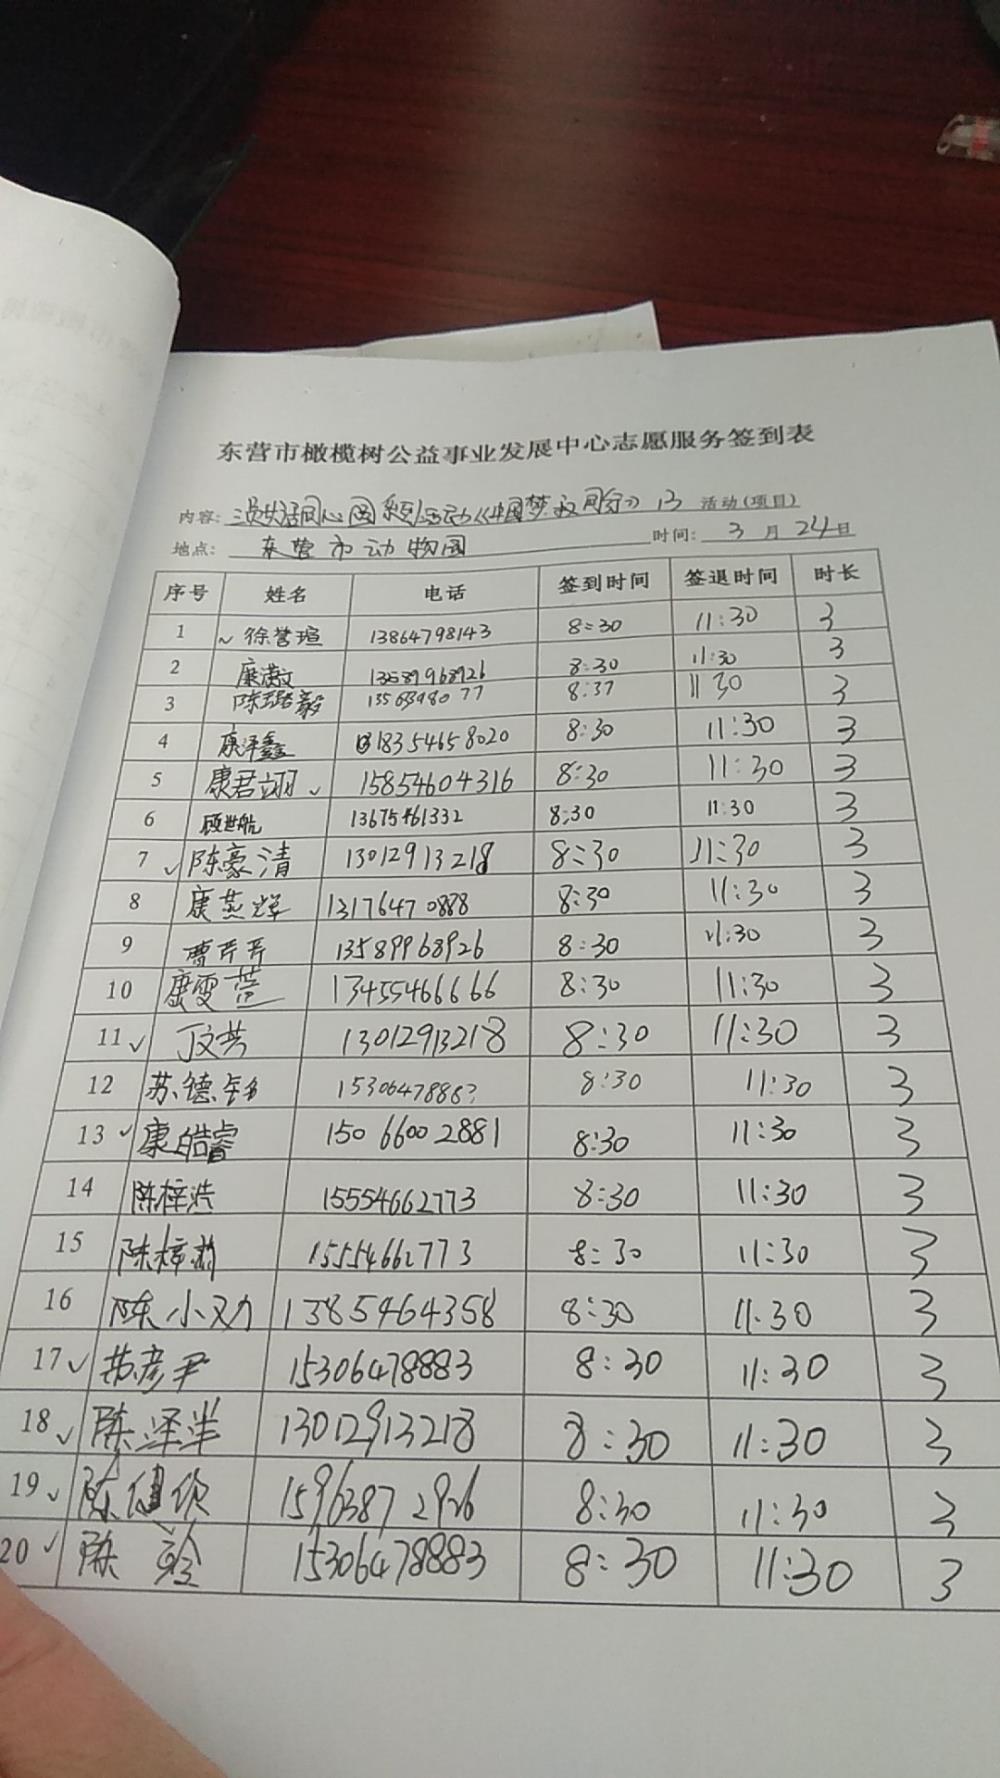 东营市橄榄树公益事业发展中心志愿服务签到表
内容: 同心圆 《中国梦 》 13 活动(项目)
地点: 东营市动物园 时间: 3 月 24 日
序号 姓名 电话 签到时间 签退时间 时长
1 ~ 徐誉瑄 13864798143 8:30 11:30 3
2 康潇文 13589968926 8:30 11:30 3
3 陈璐毅 8:37 11 30 3
4 康泽鑫 18354658020 8:30 11:30 3
5 康君翊 ✓ 15854604316 8:30 11:30 3
6 顾世航 13675461332 8:30 11:30 3
7 ✓ 陈豪清 13012913218 8:30 11:30 3
8 康燕辉 13176470888 8:30 11:30 3
9 曹芹芹 13589968926 8:30 11:30 3
10 康雯萱 13455466666 8:30 11:30 3
11 ✓ 丁文芸 13012913218 8:30 11:30 3
12 苏德 8:30 11:30 3
13 ✓ 康皓睿 150 6600 2881 8:30 11:30 3
14 陈梓浩 15554662773 8:30 11:30 3
15 陈梓 15554662773 8:30 11:30 3
16 陈小 1385464358 8:30 11:30 3
17 ✓ 苏彦尹 15306478883 8:30 11:30 3
18 ✓ 陈泽 13012913218 8:30 11:30 3
19 ✓ 陈健 15963872926 8:30 11:30 3
20 ✓ 陈 15306478883 8:30 11:30 3